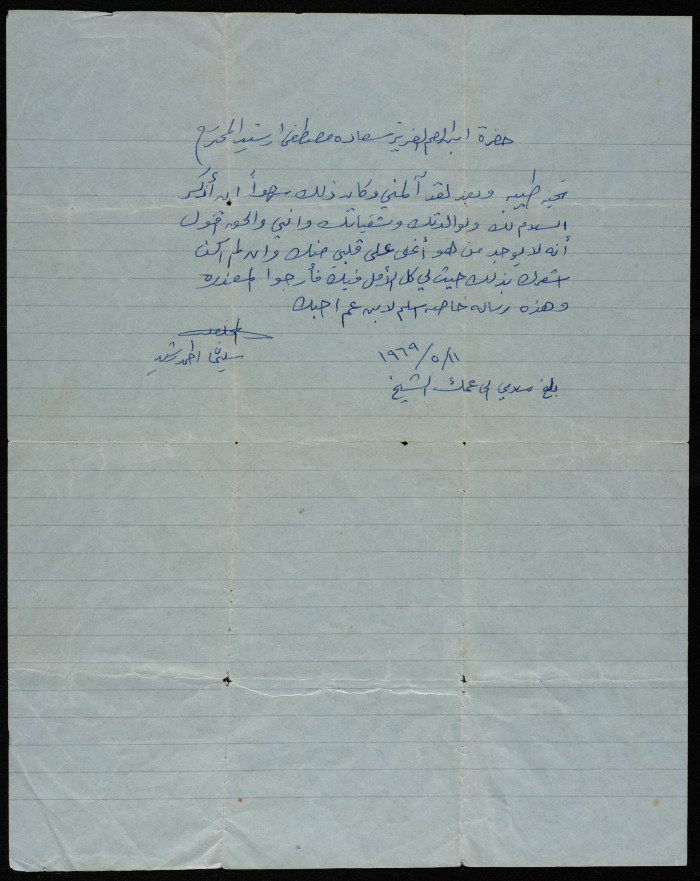 حضرة ابن العم العزيز سعاده مصطفى ارشيد المحترم
تحيه طيبه وبعد لقد آلمني وكان ذلك سهواً ان أذكر
السلام لك ولوالدتك وشقيقاتك وانني والحق اقول
أنه لا يوجد من هو أغلى على قلبي منك وان لم اكن
اشعرك بذلك حيث لي كل الأمل فيك فأرجوا المعذره
وهذه رساله خاصه سلم لابن عم احبك
المخلص
احمد رشيد
١٩٦٩/٥/١١
بلغ سلامي الى عمك الشيخ